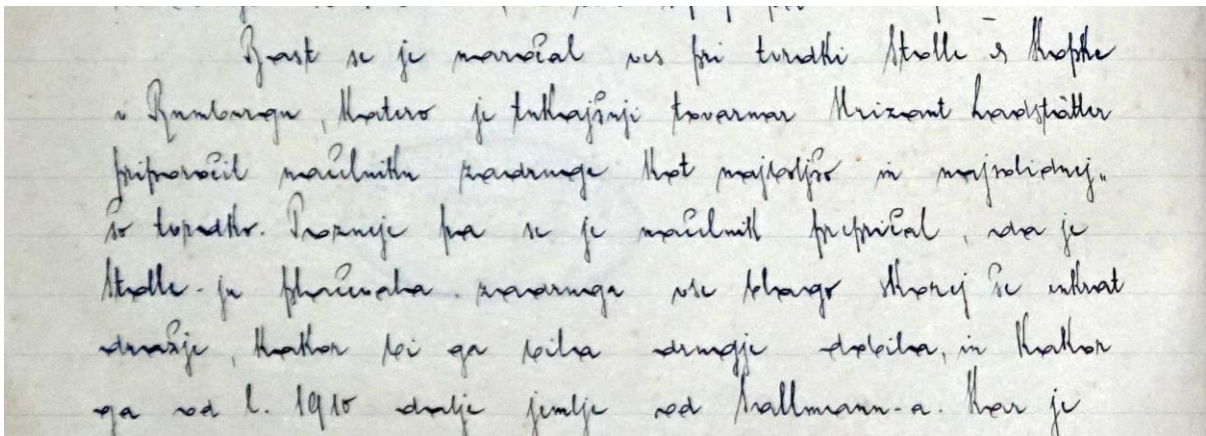 Bast se je naročal ves pri tvrdki Stolle & Kopke
v Rumburgu, katero je tukajšnji tovarnar Krizant Ladstätter
priporočil načelniku zadruge kot najboljšo in najsolidnej„
šo tvrdko. Pozneje pa se je načelnik prepričal, da je
Stolle-ju plačevala zadruga vse blago skorej še enkrat
dražje, kakor bi ga bila drugje dobila, in kakor
ga od l. 1910 dalje jemlje od Sallmann-a. Kar je